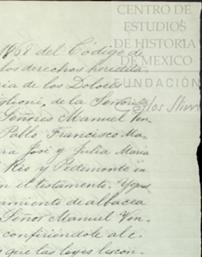 CENTRO DE
ESTUDIOS
DE HISTORIA
DE MEXICO
FUNDACIÓN
1958 del Código de
los derechos heredita
cia de los Dolores
de la Señora
Señores Manuel
Pablo Francisco Ma
ra José y Julia María
Rio y Pedemonte in
en el testamento.
amiento de albacea
Señor Manuel Von
confiriéndole al
que las leyes